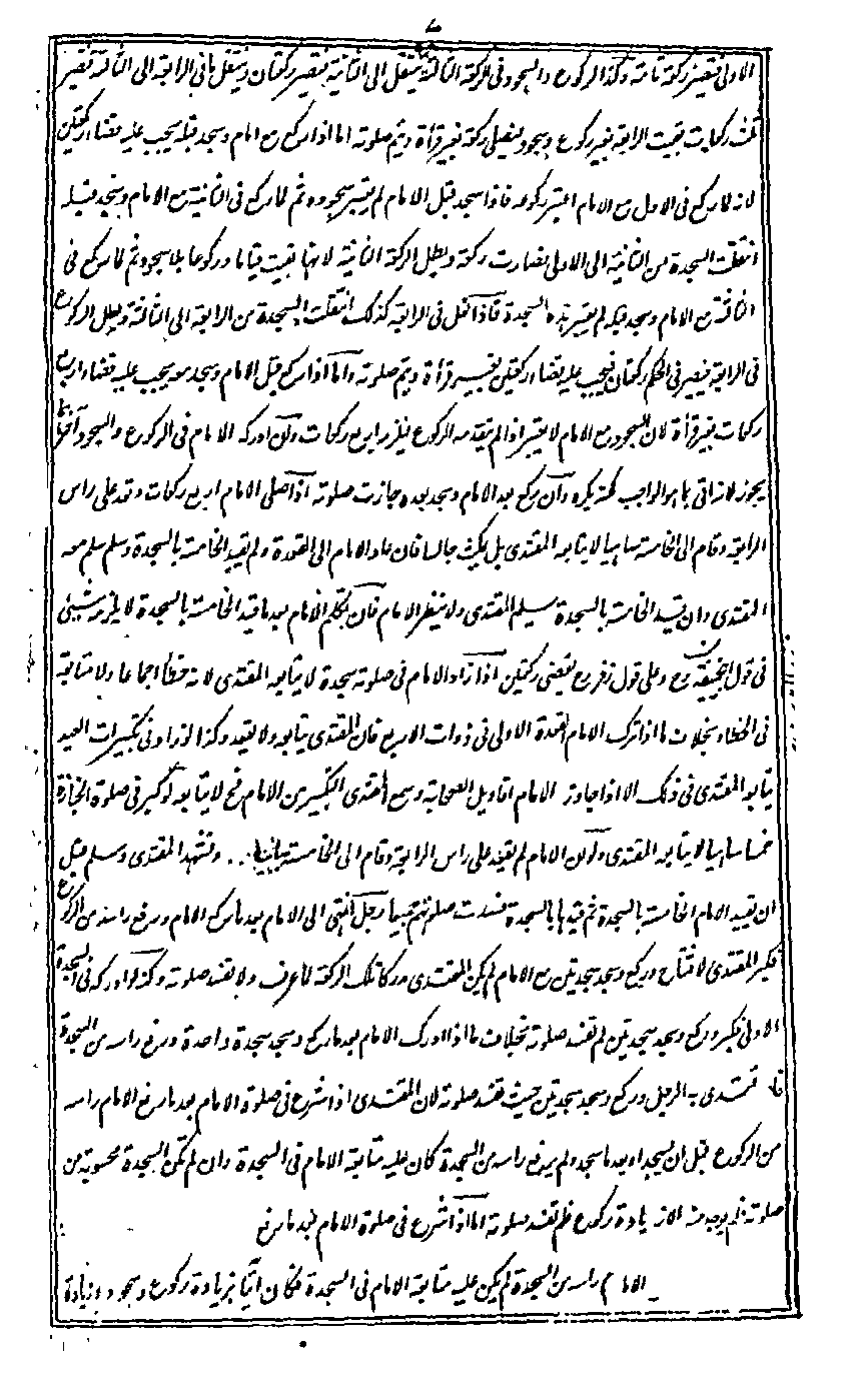 الاولى فتصير ركعة تامة وكذا الركوع والسجود فى الركعة الثالثة ينتقل الى الثانية فتصير ركعتان وينتقل ما فى الرابعة الى الثالثة فتصير
ثلث ركعات بقيت الرابعة بغير ركوع وسجود فيصلى ركعة بغير قرأة ويتم صلوته اما اذا ركع مع امام وسجد قبله يجب عليه قضاء ركعتين
لانه لما ركع فى الاول مع الامام اعتبر ركوعه فاذا سجد قبل الامام لم يعتبر سجوده ثم لما ركع فى الثانية مع الامام وسجد قبله
انتقلت السجدة من الثانية الى الاولى فصارت ركعة وبطل الركعة الثانية لانها بقيت قياما وركوعا بلا سجود ثم لما ركع فى
الثالثة مع الامام وسجد قبله لم يعتبر هذه السجدة فاذا فعل فى الرابعة كذلك انتقلت السجدة من الرابعة الى الثالثة وبطل الركوع
فى الرابعة فيصير فى الحكم ركعتان فيجب عليه قضاء ركعتين بغير قرأة ويتم صلوته واما اذا ركع قبل الامام وسجد معه يجب عليه قضاء اربع
ركعات بغير قرأة لان السجود مع الامام لا يعتبر اذا لم يتقدمه الركوع فيلزم اربع ركعات وان ادركه الامام فى الركوع والسجود آخرا
يجوز لانه اتى بما هو الواجب لكنه يكره وان ركع بعد الامام وسجد بعده جازت صلوته اذا صلى الامام اربع ركعات وقعد على راس
الرابعة وقام الى الخامسة ساهيا لا يتابعه المقتدى بل يمكث جالسا فان عاد الامام الى القعدة ولم يقيد الخامسة بالسجدة وسلم سلم معه
المقتدى وان قيد الخامسة بالسجدة يسلم المقتدى ولا ينتظر الامام فان تكلم الامام بعد ما قيد الخامسة بالسجدة لا يلزمه شيئ
فى قول ابيحنيفة رح وعلى قول زفر رح يقضى ركعتين اذا زاد الامام فى صلوته سجدة لا يتابعه المقتدى لانه خطأ اجماعا ولا متابعة
فى الخطاء بخلاف ما اذا ترك الامام القعدة الاولى فى ذوات الاربع فان المقتدى يتابعه ولا يقعد وكذا لو زاد فى تكبيرات العيد
يتابعه المقتدى فى ذلك الا اذا جاوز الامام اقاويل الصحابة وسمع المقتدى التكبير من الامام فح لا يتابعه لو كبر فى صلوة الجنازة
خمسا ساهيا لا يتابعه المقتدى ولو ان الامام لم يقعد على راس الرابعة وقام الى الخامسة ساهيا وتشهد المقتدى وسلم قبل
ان يقيد الامام الخامسة بالسجدة ثم قيدها بالسجدة فسدت صلوتهم جميعا رجل انتهى الى الامام بعد ما ركع الامام ورفع راسه من الركوع
فكبر المقتدى لافتتاح وركع وسجد سجدتين مع الامام لم يكن المقتدى مدركا تلك الركعة لما عرف ولا تفسد صلوته وكذا لو ادركه فى السجدة
الاولى فكبر وركع وسجد سجدتين لم تفسد صلوته بخلاف ما اذا ادرك الامام بعد ما ركع وسجد سجدة واحدة ورفع راسه من السجدة
فاقتدى به الرجل وركع وسجد سجدتين حيث تفسد صلوته لان المقتدى اذا شرع فى صلوة الامام بعد ما رفع الامام راسه
من الركوع قبل ان يسجد او بعد ما سجد ولم يرفع راسه من السجدة كان عليه متابعة الامام فى السجدة وان لم تكن السجدة محسوبة من
صلوته فلم يوجد منه الا زيادة ركوع فلم تفسد صلوته اما اذا شرع فى صلوة الامام بعد ما رفع
الامام راسه من السجدة لم يكن عليه متابعة الامام فى السجدة فكان اتيا بزيادة ركوع وسجود وزيادة